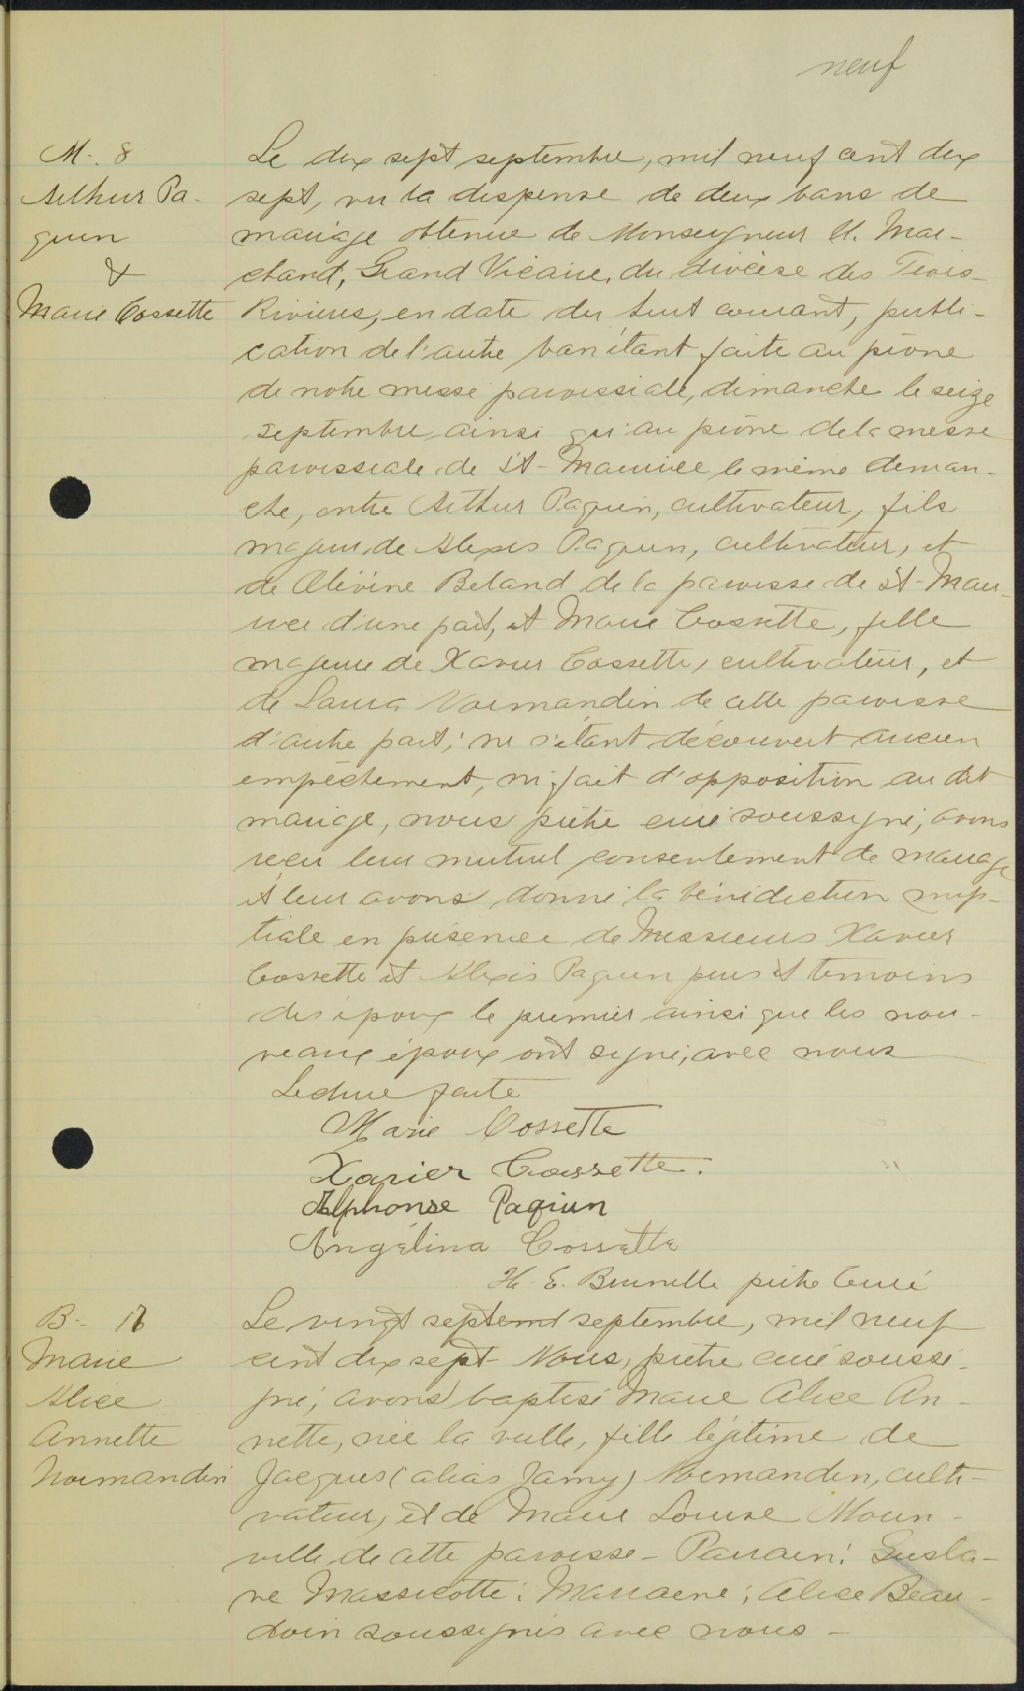 neuf
M. 8
Arthur Pa-
quin
&
Marie Cossette
Le dix sept septembre, mil neuf cent dix
sept, vu la dispense de deux bans de
mariage obtenue de Monseigneur U. Mar-
chand, Grand Vicaire, du diocèse des Trois-
Rivières, en date du huit courant, publi-
cation de l'autre ban étant faite au prône
de notre messe paroissiale, dimanche le seize
septembre, ainsi qu'au prône de la messe
paroissiale de St-Maurice le même diman-
che, entre Arthur Paquin, cultivateur, fils
majeur de Alexis Paquin, cultivateur, et
de Olivine Beland de la paroisse de St-Mau-
rice d'une part, et Marie Cossette, fille
majeure de Xavier Cossette, cultivateur, et
de Laura Normandin de cette paroisse
d'autre part; ne s'étant découvert aucun
empêchement, ni fait d'opposition au dit
mariage, nous prêtre curé soussigné, avons
reçu leur mutuel consentement de mariage
et leur avons donné la bénédiction nup-
tiale en présence de Messieurs Xavier
Cossette et Alexis Paquin pères et temoins
des époux le premier ainsi que les nou-
veaux époux ont signé, avec nous
Lecture faite
Marie Cossette
Xavier Cossette.
Alphonse Paquin
Angélina Cossette
H. E. Brunelle prêtre Curé
B- 17
Marie
Alice
Annette
Normandin
Le vingt sept septembre, mil neuf
cent dix sept- Nous, prêtre curé soussi-
gné, avons baptisé Marie Alice An-
nette, née la veille, fille légitime de
Jacques (alias Jamy) Normandin, culti-
vateur, et de Marie Louise Moun-
ville de cette paroisse- Parrain: Gusta-
ve Massicotte: Marraine; Alice Beau-
doin soussignés avec nous-